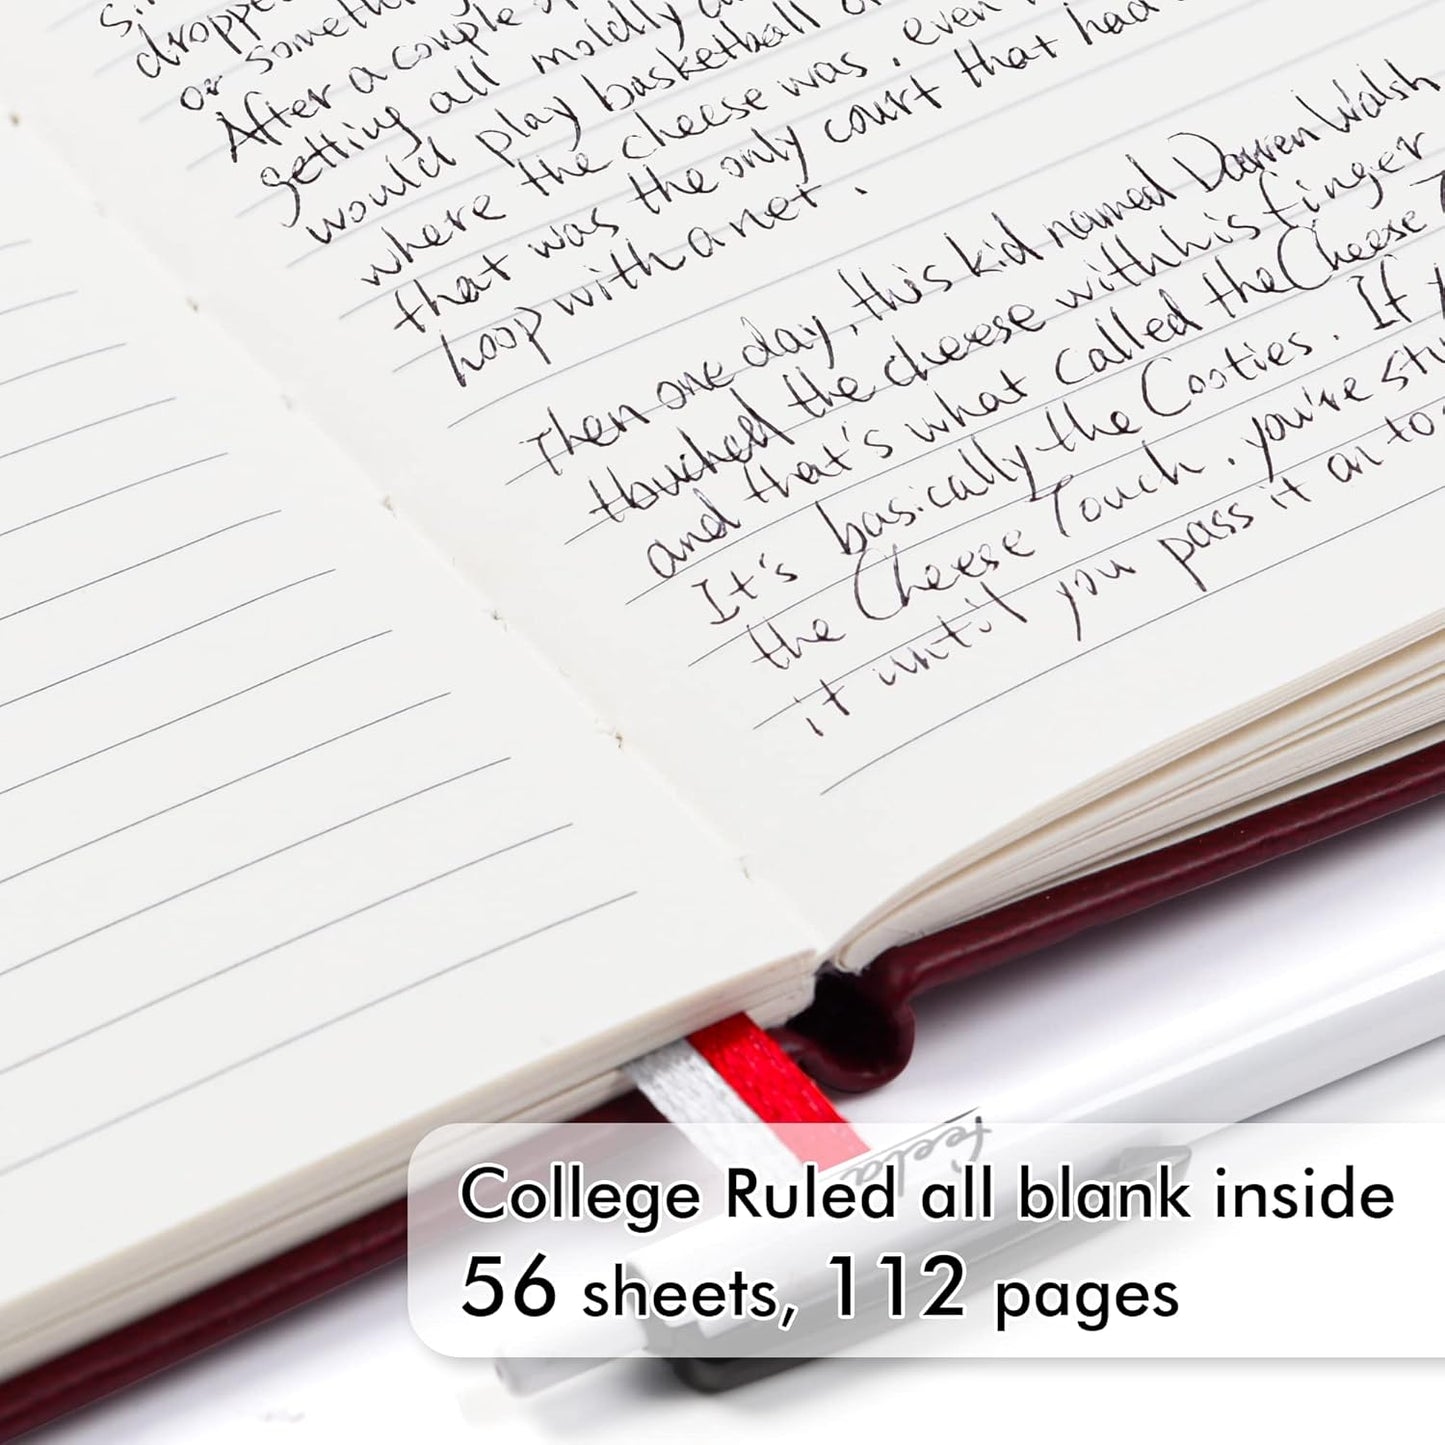 dropped
or something
After a couple
getting all moldly
would play basketball
where the cheese was, even
that was the only court that had
hoop with a net.
Then one day, this kid named Darren Walsh
touched the cheese with his finger
and that's what called the Cheese
It's basically the Cooties. If
the Cheese Touch, you're
it until you pass it on to
feela
College Ruled all blank inside
56 sheets, 112 pages